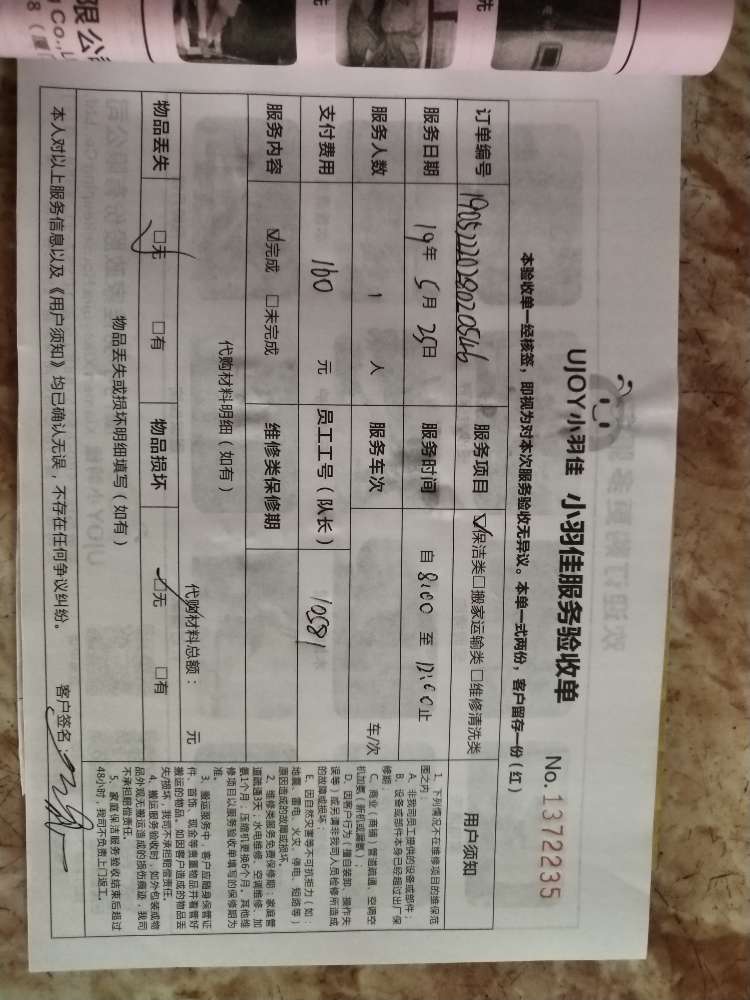 限公
g Co.,L
8（厦门
先
先
UJOY小羽佳 小羽佳服务验收单
No.1372235
本验收单一经核签，即视为对本次服务验收无异议。本单一式两份，客户留存一份（红）
订单编号 190522202902020546 服务项目 ☑保洁类□搬家运输类□维修清洗类 用户须知
服务日期 19年5月25日 服务时间 自 8:00 至 12:00止
服务人数 1 人 服务车次 车/次
支付费用 160 元 员工工号（队长） 10581
服务内容 ☑完成 □未完成 维修类保修期
代购材料明细（如有） 代购材料总额： 元
物品丢失 ☑无 □有 物品损坏 ☑无 □有
物品丢失或损坏明细填写（如有）
本人对以上服务信息以及《用户须知》均已确认无误，不存在任何争议纠纷。 客户签名：
1、下列情况不在维修项目的维保范
围之内：
A、非我司员工提供的设备或部件；
B、设备或部件本身已经超过出厂保
修期；
C、商业（商铺）管道疏通，空调空
机加氨（新机或漏氨）；
D、因客户行为（擅自装卸、操作失
误等）或另请非我司人员检修所造成
的故障或损坏；
E、因自然灾害等不可抗拒力（如：
地震、雷电、火灾、停电、短路等）
原因造成的故障或损坏。
2、维修类服务免费保修期：家庭管
道疏通3天；水电维修、空调维修、加
氨1个月，压缩机更换6个月。其他维
修项目以服务验收单填写的保修期为
准。
3、搬运服务中，客户应随身保管证
件、首饰、现金等贵重物品并看管好
搬运的物品。如因客户造成的物品丢
失/损坏，我司不承担赔偿责任。
4、搬运服务验收时，如外包装或物
品外观无搬运造成的损伤痕迹，我司
不承担赔偿责任。
5、家庭保洁服务验收结束后超过
48小时，我司不负责上门返工。